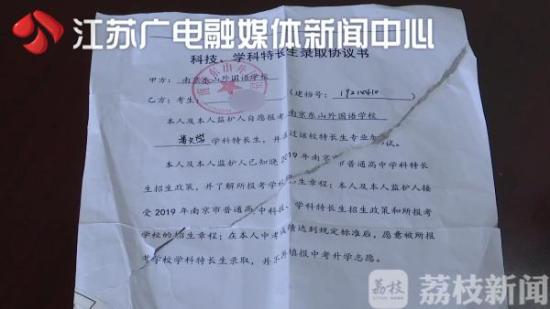 江苏广电融媒体新闻中心
科技、学科特长生录取协议书
甲方：南京东山外国语学校
乙方：考生： （建档号：19210410）
本人及本人监护人自愿报考南京东山外国语学校
学科特长生，并 过该校特长生专业加试。
本人及本人监护人已知晓2019年南京市普通高中学科特长
生招生政策，并了解所报考学校招生章程；本人及本人监护人接
受2019年南京市普通高中科技、学科特长生招生政策和所报考
学校的招生章程；在本人中考成绩达到规定标准后，愿意被所报
考学校学科特长生录取，并不再填报中考升学志愿。
荔枝
荔枝新闻